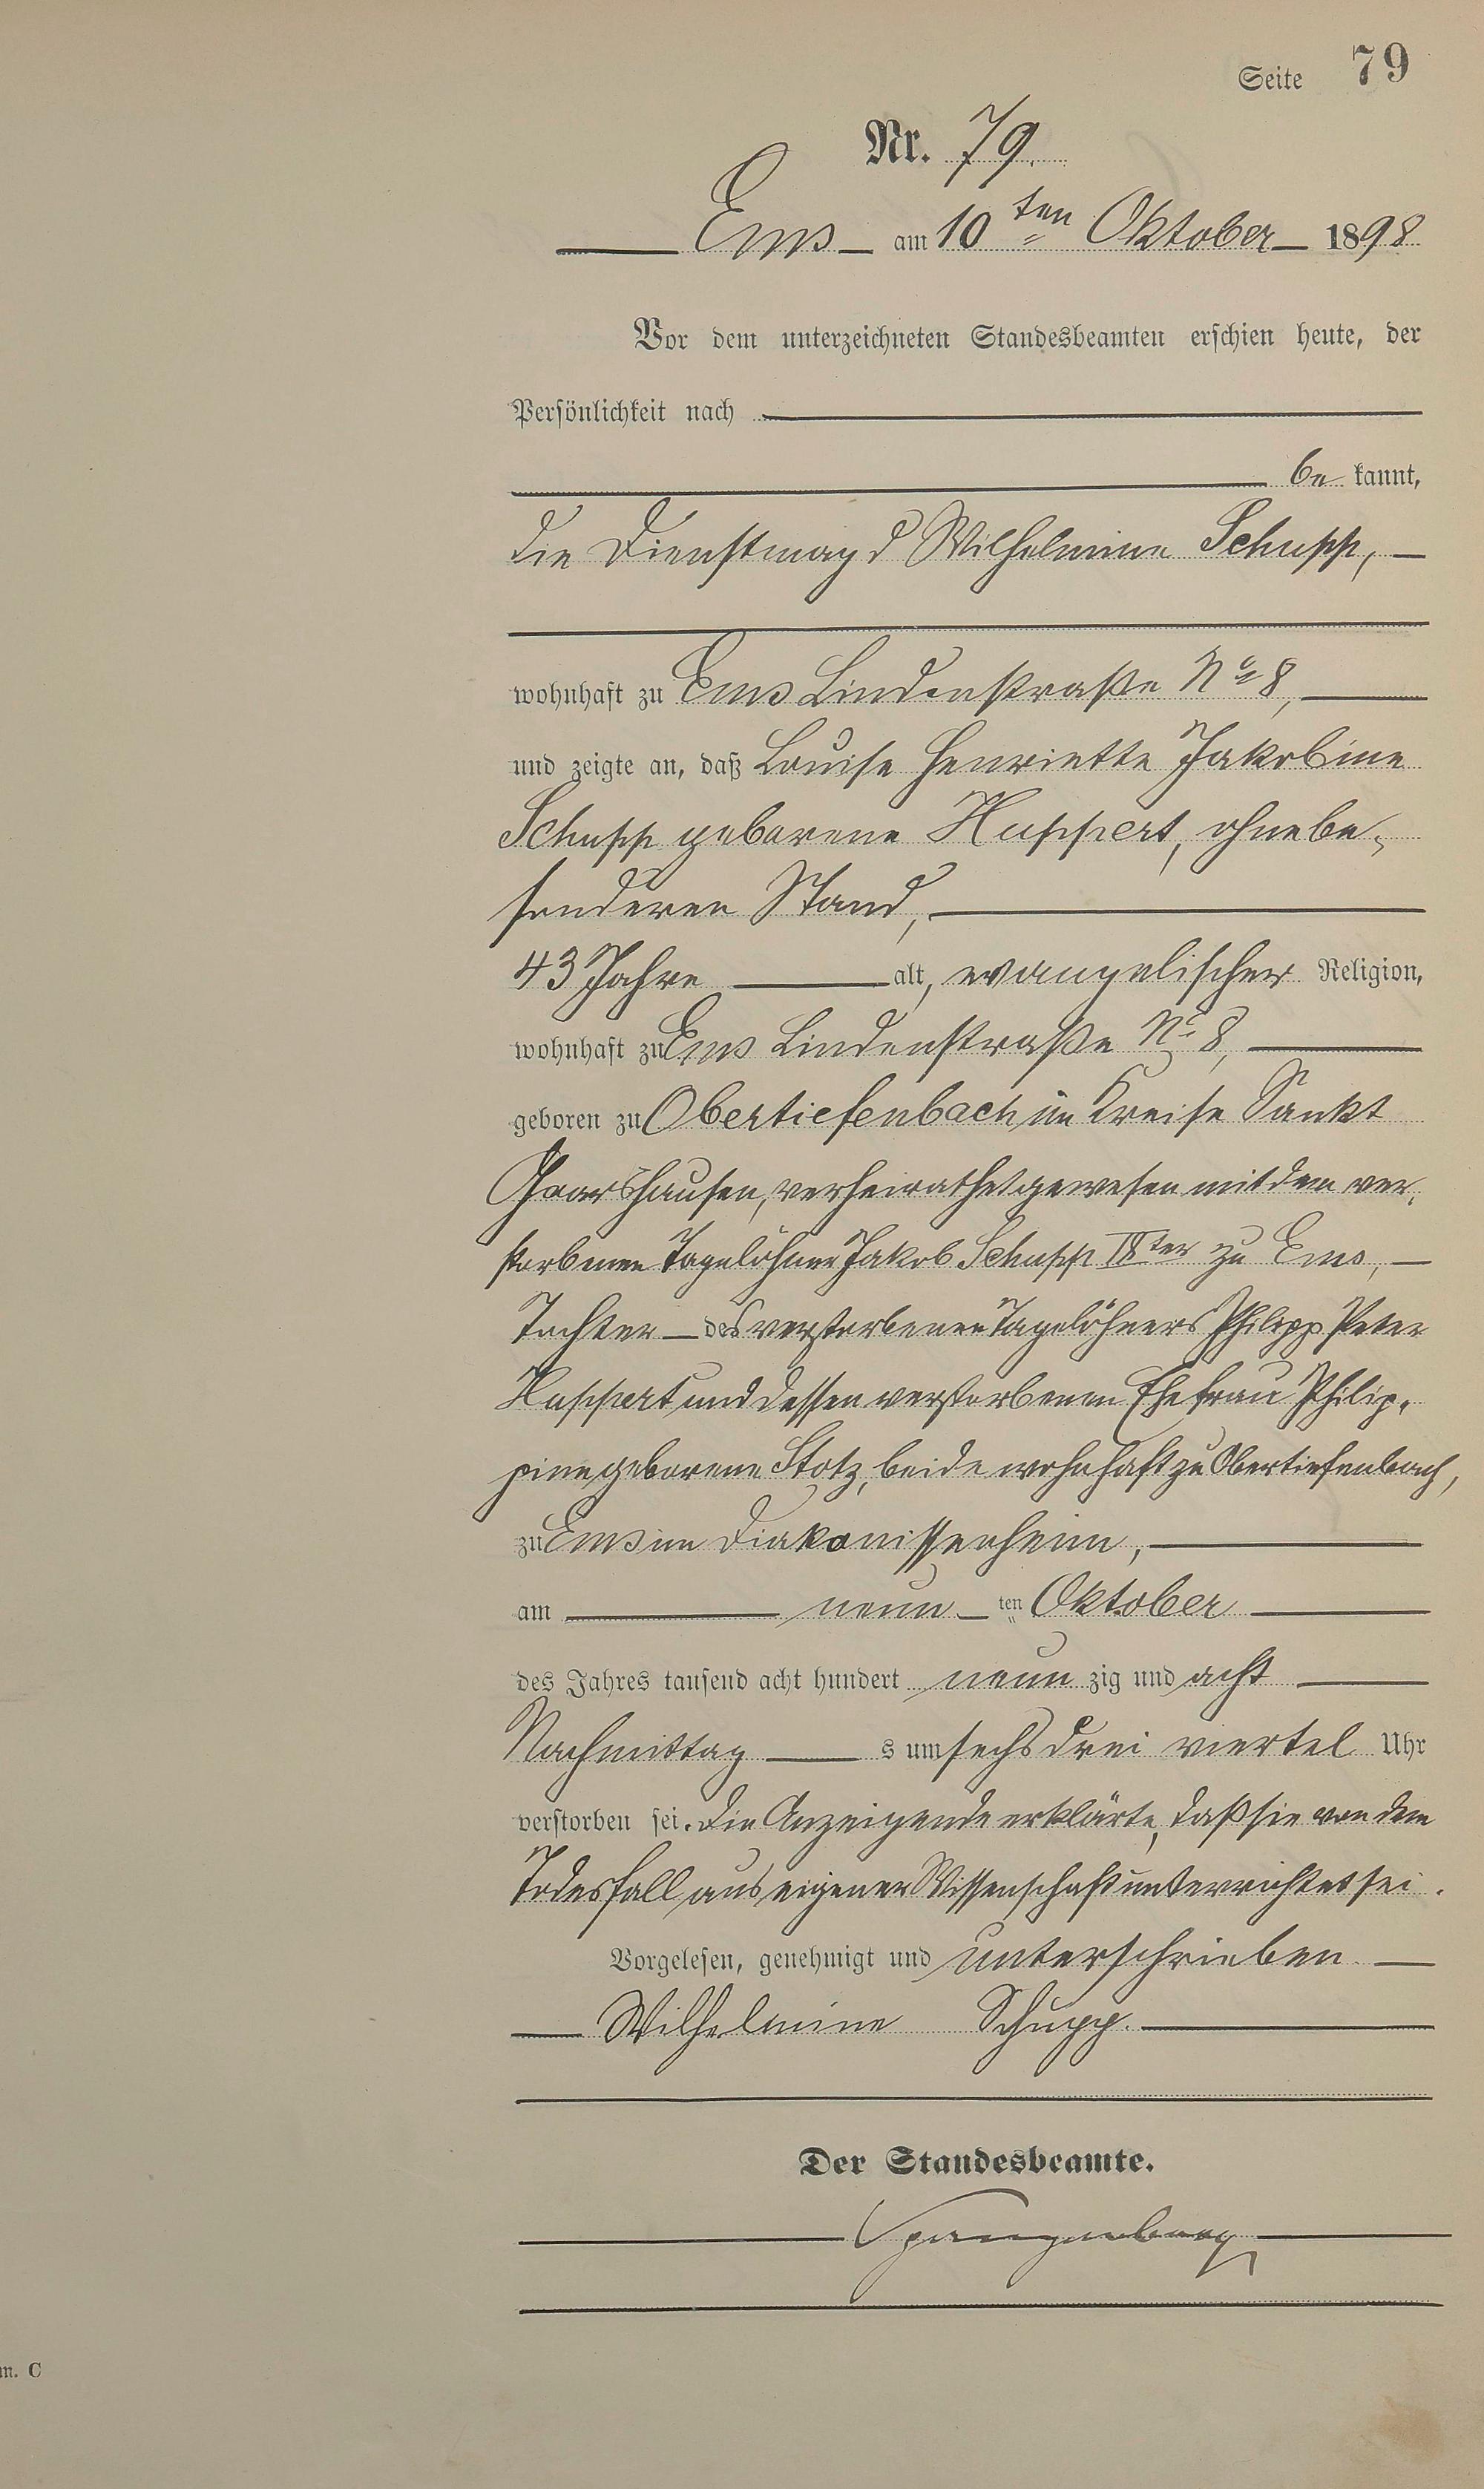 Seite 79
Nr. 79.
Ems am 10ten Oktober 1898
Vor dem unterzeichneten Standesbeamten erschien heute, der
Persönlichkeit nach
be kannt,
die Dienstmagd Wilhelmine Schupp,
wohnhaft zu Ems Lindenstraße No 8,
und zeigte an, daß Louise Henriette Jakobine
Schupp geborene Huppert, ohne be-
sonderen Stand,
43 Jahre alt, evangelischer Religion,
wohnhaft zu Ems Lindenstraße No 8,
geboren zu Obertiefenbach im Kreise Sankt
Goarshausen, verheirathet gewesen mit dem ver-
storbenen Tagelöhner Jakob Schupp IIter zu Ems,
Tochter des verstorbenen Tagelöhners Philipp Peter
Huppert und dessen verstorbenen Ehefrau Philip-
pine geborene Stotz, beide wohnhaft zu Obertiefenbach,
zu Ems im Diakonissenheim,
am neun ten Oktober
des Jahres tausend acht hundert neun zig und acht
Nachmittag s um sechs drei viertel Uhr
verstorben sei. Die Anzeigende erklärte, daß sie von dem
Todesfall aus eigener Wissenschaft unterrichtet sei.
Vorgelesen, genehmigt und unterschrieben
Wilhelmine Schupp.
Der Standesbeamte.
Spangenberg
m. C